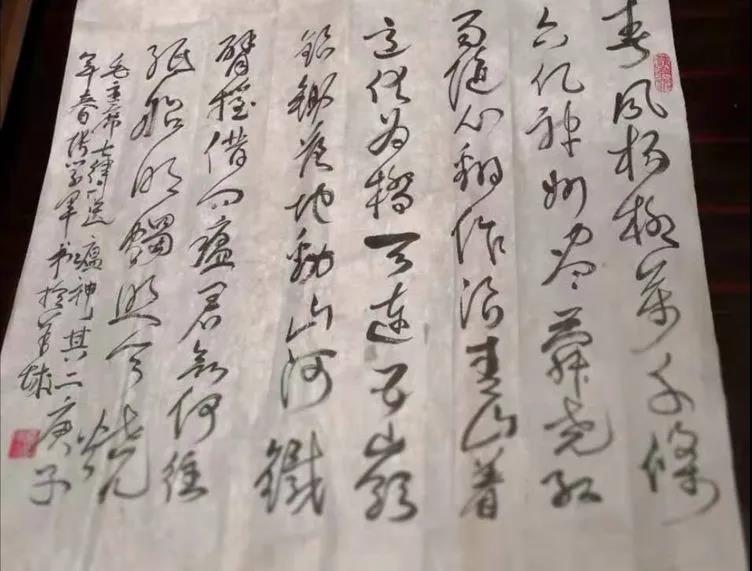 春风杨柳万千條
六亿神州尽舜尧红
雨随心翻作浪青山着
意化为橋天连五岭
銀鋤落地動山河鐵
臂摇借问瘟君欲何往
纸船明燭照天烧
毛主席七律送瘟神其二庚子
年春 学军书